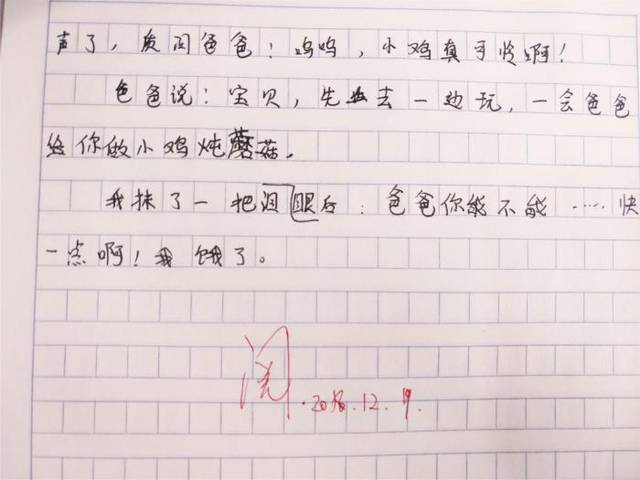 声了，质问爸爸：呜呜，小鸡真可怜啊！
爸爸说：宝贝，先去一边玩，一会爸爸
给你做小鸡炖蘑菇。
我抹了一把泪眼后：爸爸你能不能……快
一点啊！我饿了。
阅
.12.9.